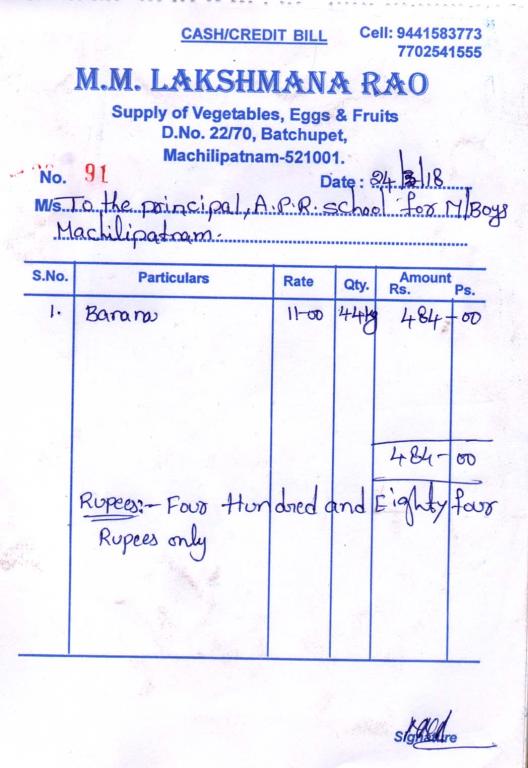 CASH/CREDIT BILL
Cell: 9441583773
7702541555
M.M. LAKSHMANA RAO
Supply of Vegetables, Eggs & Fruits
D.No. 22/70, Batchupet,
Machilipatnam-521001.
No. 91
Date: 24/3/18
M/s. To the principal, A.P.R. school for M/Boys
Machilipatnam.
S.No. Particulars Rate Qty. Amount Rs. Ps.
1. Banana 11-00 44kg 484-00
484-00
Rupees:- Four Hundred and Eighty four
Rupees only
Signature